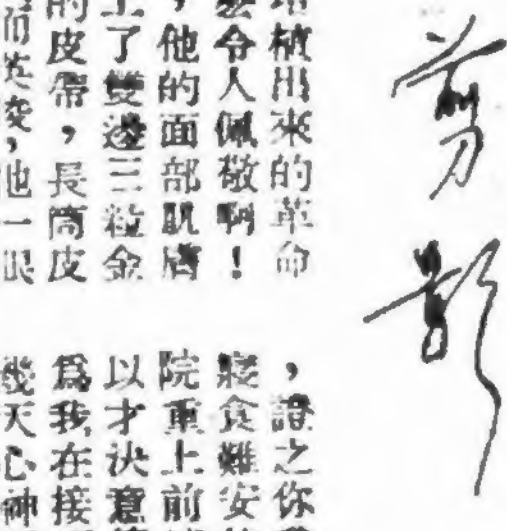 剪影
培植出來的革命
令人佩敬啊！
，他的面部肌膚
上了雙邊三粒金
的皮帶，長筒皮
而英俊，他一眼
，證之你
寢食難安
院重上前
以才決意
為我在接
幾天心神